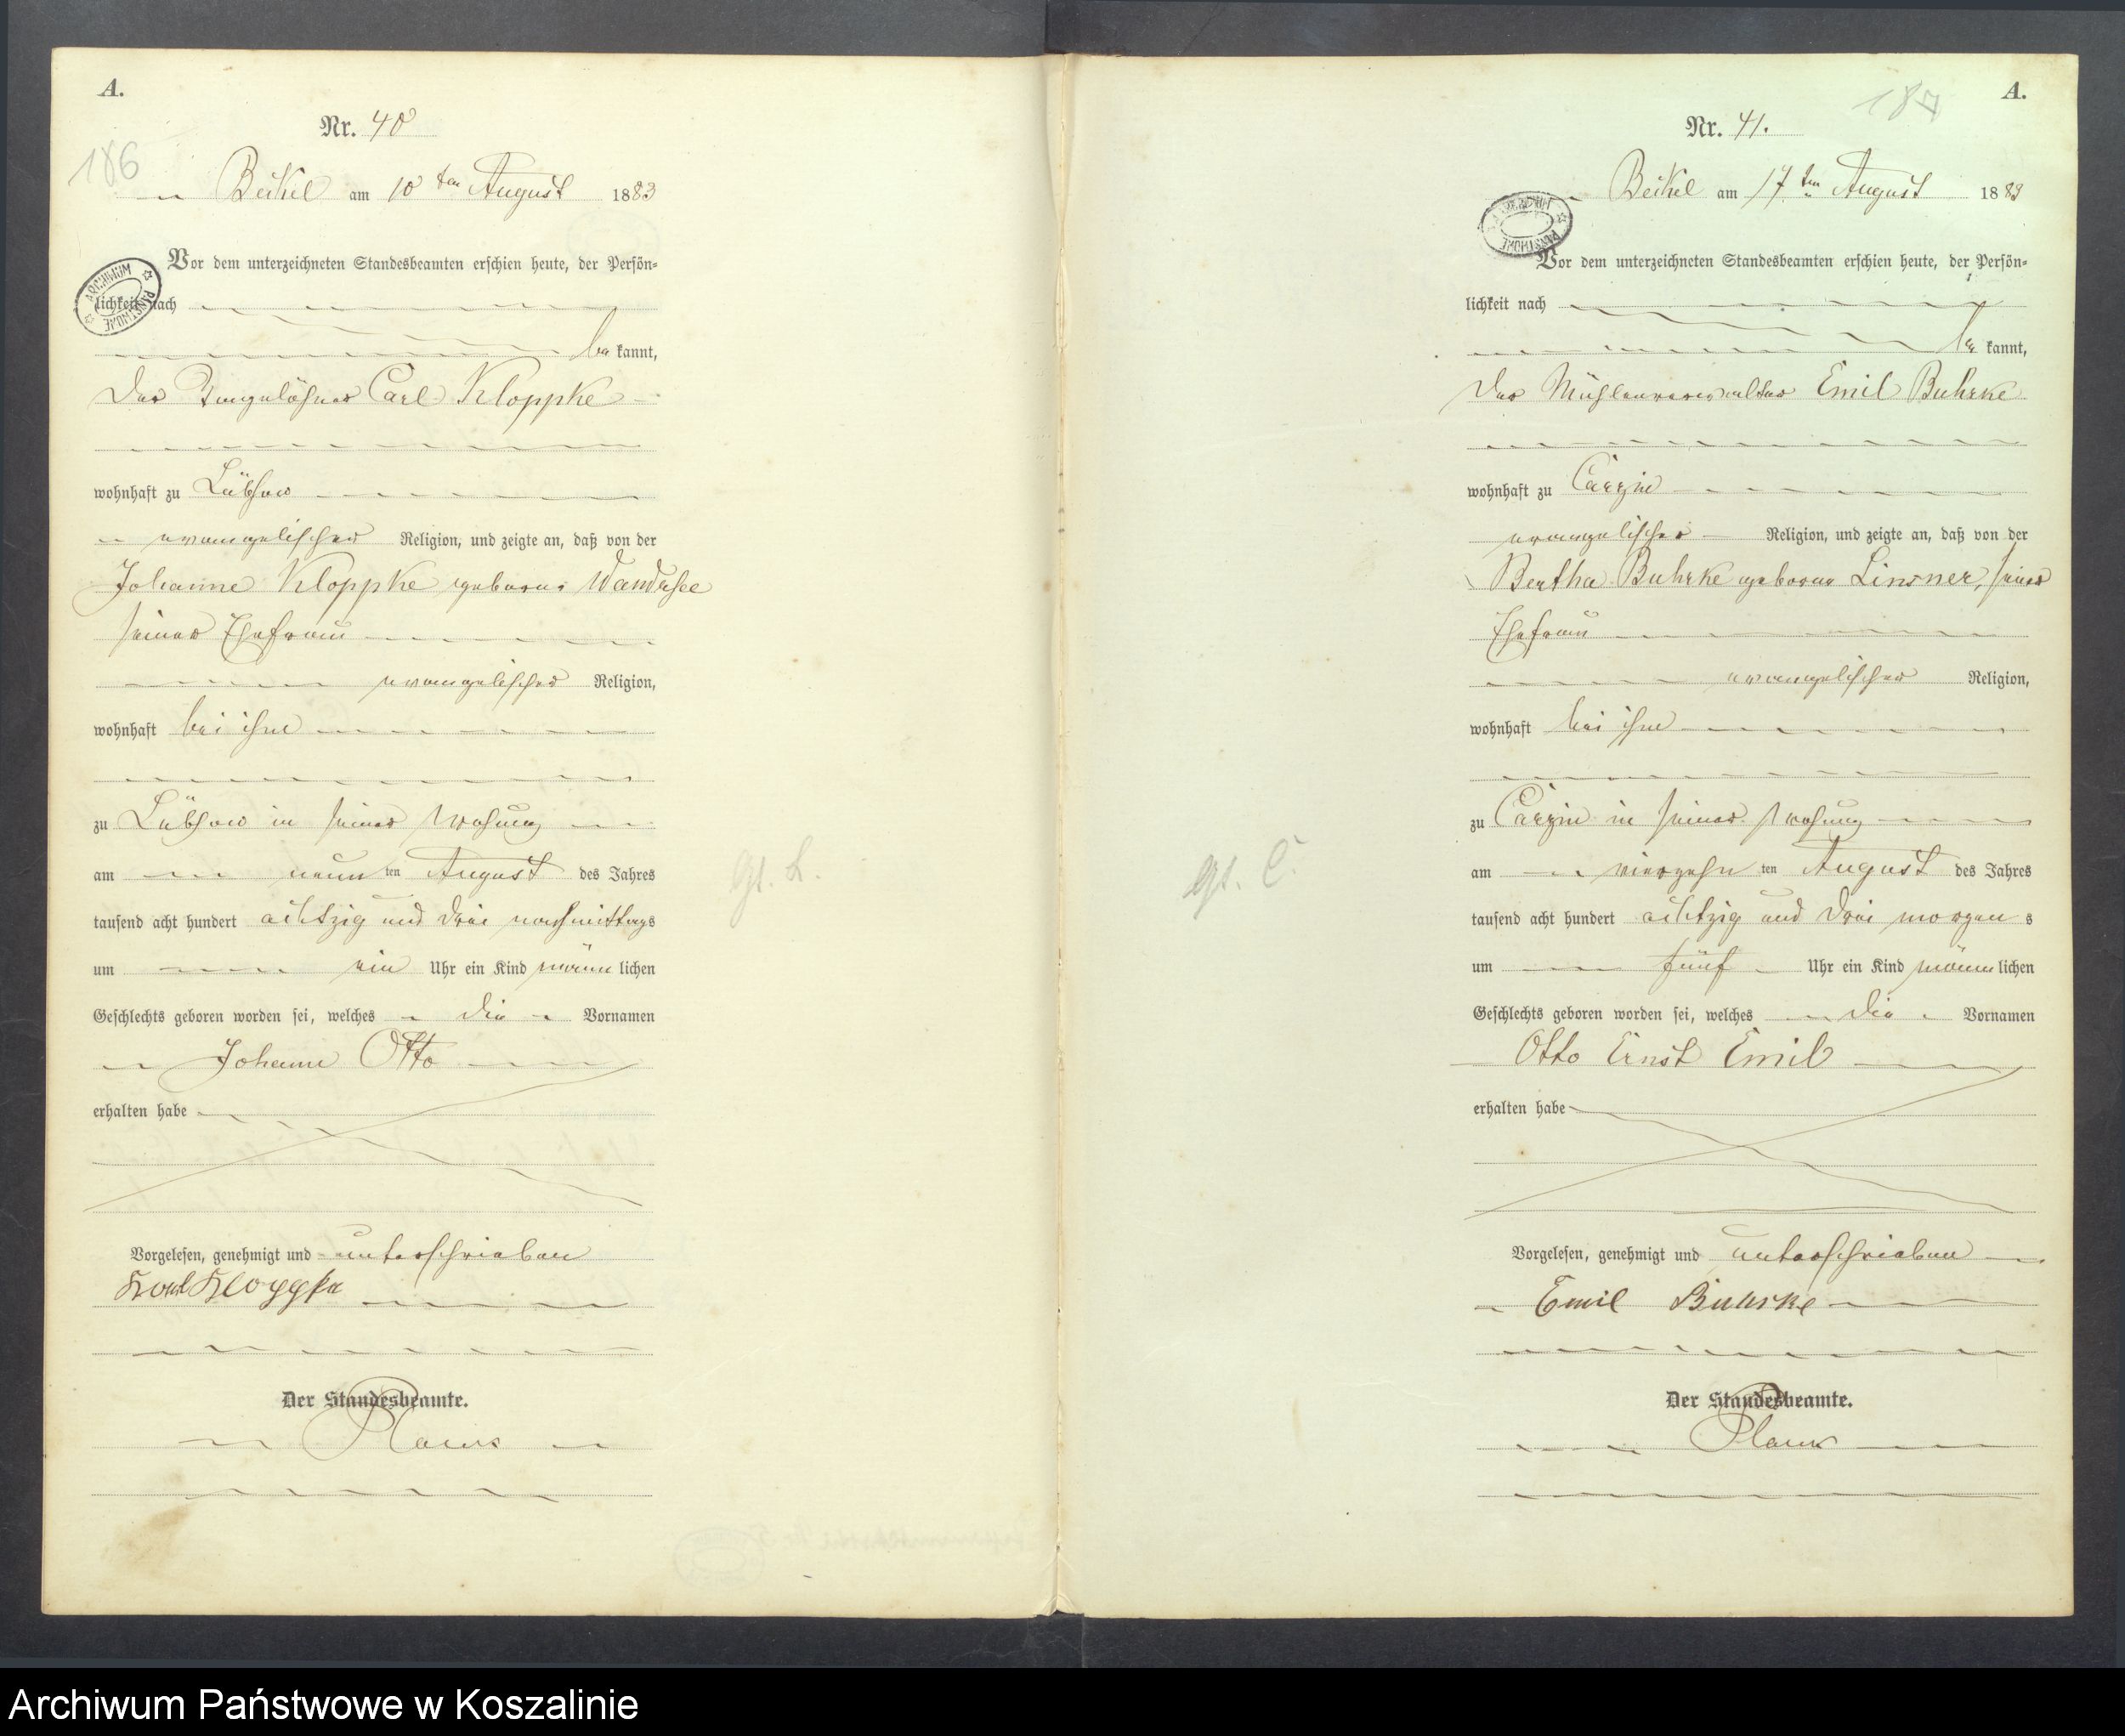 A.
Nr. 40
186
Beckel am 10 ten August 1883
Vor dem unterzeichneten Standesbeamten erschien heute, der Persön-
lichkeit nach
be kannt,
der Carl Kloppke
wohnhaft zu Lübzow
evangelischer Religion, und zeigte an, daß von der
Johanne Kloppke geborne Wandersee
seiner Ehefrau
evangelischer Religion,
wohnhaft bei ihm
zu Lübzow in seiner Wohnung
am neun ten August des Jahres
tausend acht hundert achtzig und drei nachmittags
um ein Uhr ein Kind männ lichen
Geschlechts geboren worden sei, welches die Vornamen
Johann Otto
erhalten habe
Vorgelesen, genehmigt und unterschrieben
Karl Kloppke
Der Standesbeamte.
ARCHIWUM PAŃSTWOWE
Gt. L.
A.
187
Nr. 41.
Beckel am 17 ten August 1883
Vor dem unterzeichneten Standesbeamten erschien heute, der Persön-
lichkeit nach
be kannt,
der Mühlenverwalter Emil Buhrke
wohnhaft zu Carzin
evangelischer Religion, und zeigte an, daß von der
Bertha Buhrke geborne Linsner, seiner
Ehefrau
evangelischer Religion,
wohnhaft bei ihm
zu Carzin in seiner Wohnung
am vierzehn ten August des Jahres
tausend acht hundert achtzig und drei morgen s
um fünf Uhr ein Kind männ lichen
Geschlechts geboren worden sei, welches die Vornamen
Otto Ernst Emil
erhalten habe
Vorgelesen, genehmigt und unterschrieben
Emil Buhrke
Der Standesbeamte.
ARCHIWUM PAŃSTWOWE
Gt. C.
Archiwum Państwowe w Koszalinie